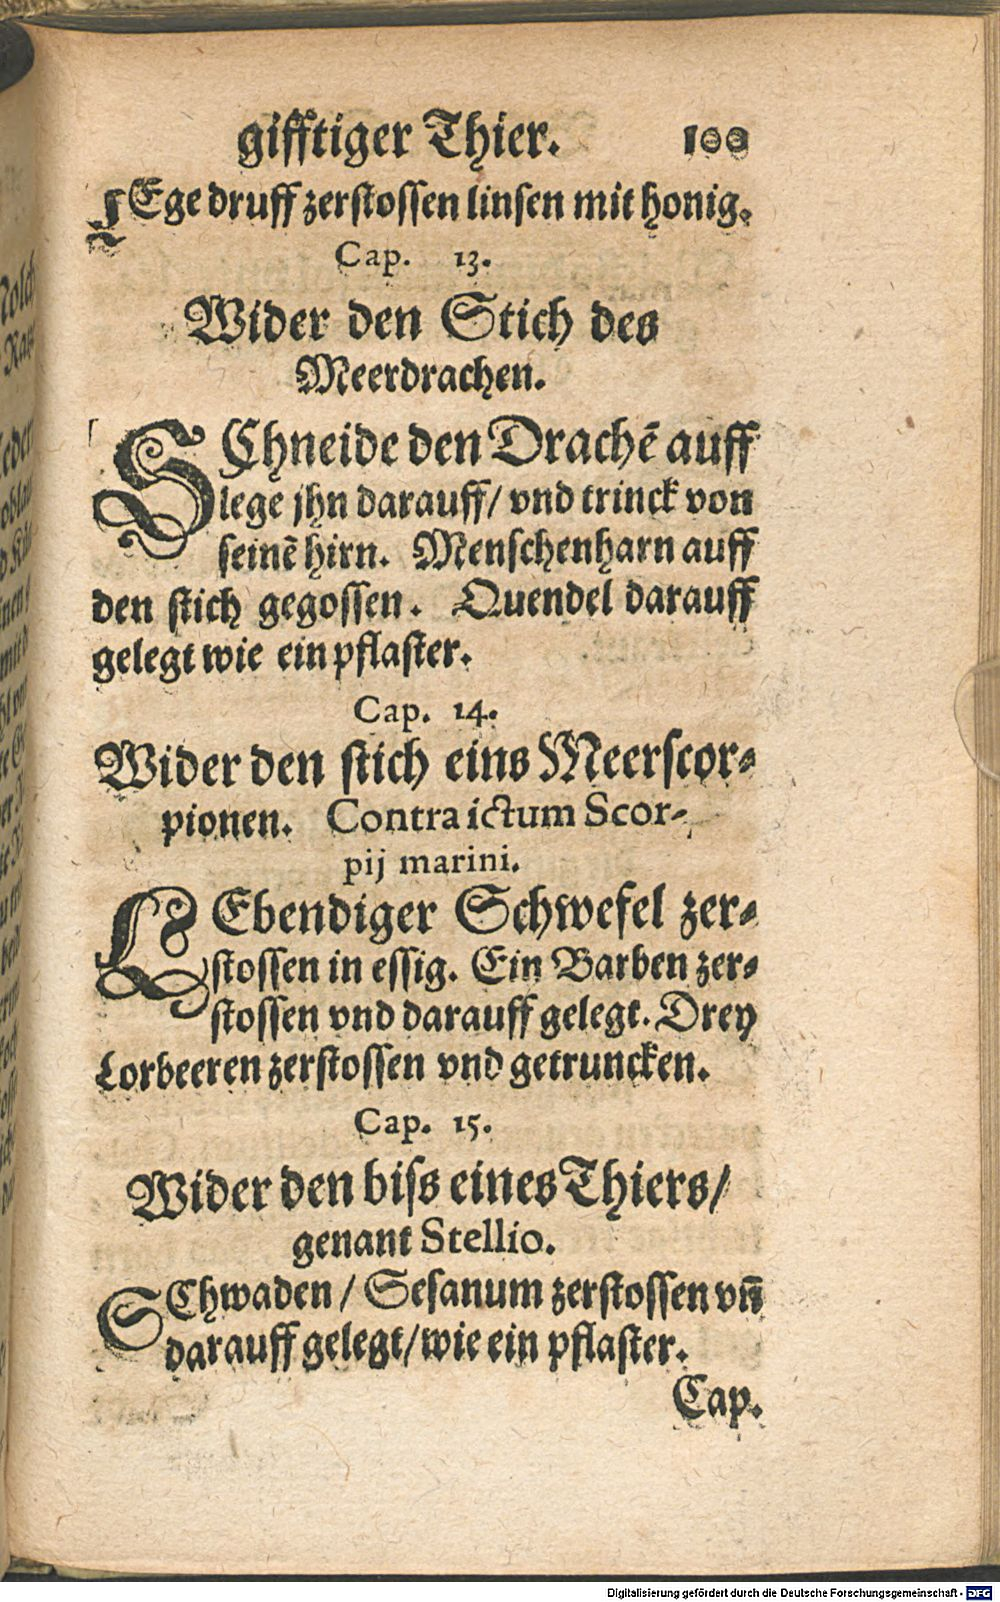 gifftiger Thier. 100
LEge druff zerstossen linsen mit honig.
Cap. 13.
Wider den Stich des
Meerdrachen.
SChneide den Drachē auff
lege jhn darauff/ vnd trinck von
seinē hirn. Menschenharn auff
den stich gegossen. Quendel darauff
gelegt wie ein pflaster.
Cap. 14.
Wider den stich eins Meerscor-
pionen. Contra ictum Scor-
pij marini.
LEbendiger Schwefel zer-
stossen in essig. Ein Barben zer-
stossen vnd darauff gelegt. Drey
Lorbeeren zerstossen vnd getruncken.
Cap. 15.
Wider den biss eines Thiers/
genant Stellio.
SChwaden / Sesanum zerstossen vn̄
darauff gelegt/wie ein pflaster.
Cap.
Digitalisierung gefördert durch die Deutsche Forschungsgemeinschaft - DFG